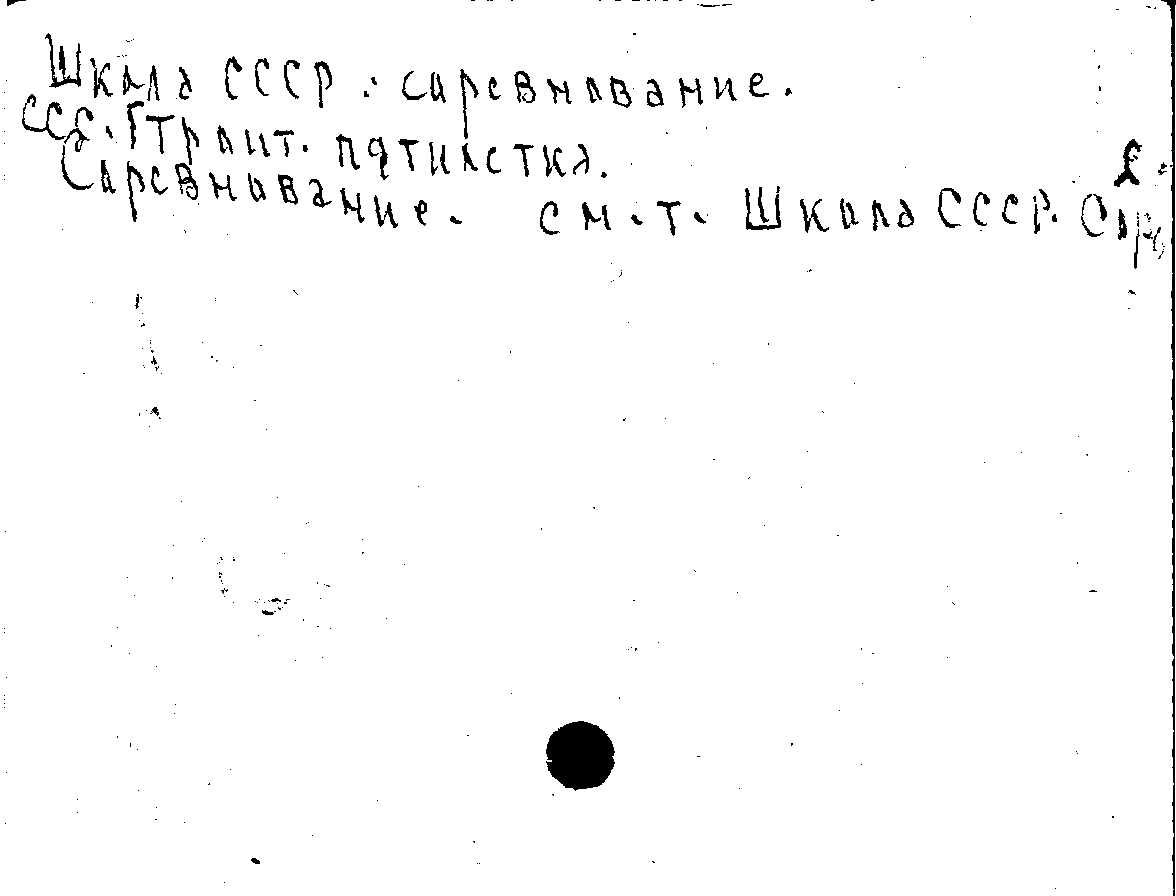 Шкала СССР : саревнавание.
ССС. Страит. пятилетка.
Саревнавание. см. т. Шкала СССР. Сарев